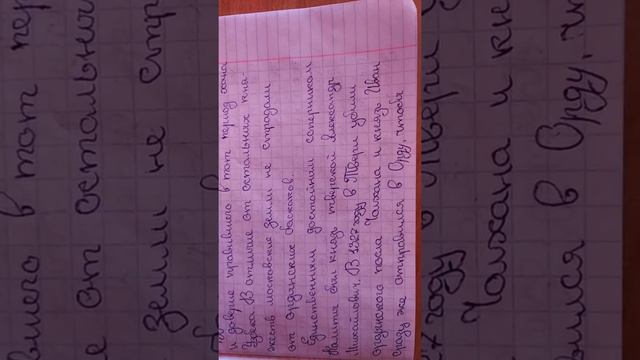 и доверие правившего в тот период хана
Узбека. В отличие от остальных кня-
жеств московские земли не страдали
от ордынских баскаков.
Единственным достойным соперником
Калиты был князь тверской Александр
Михайлович. В 1327 году в Твери убили
ордынского посла Чолхана и князь Иван
сразу же отправился в Орду, чтобы